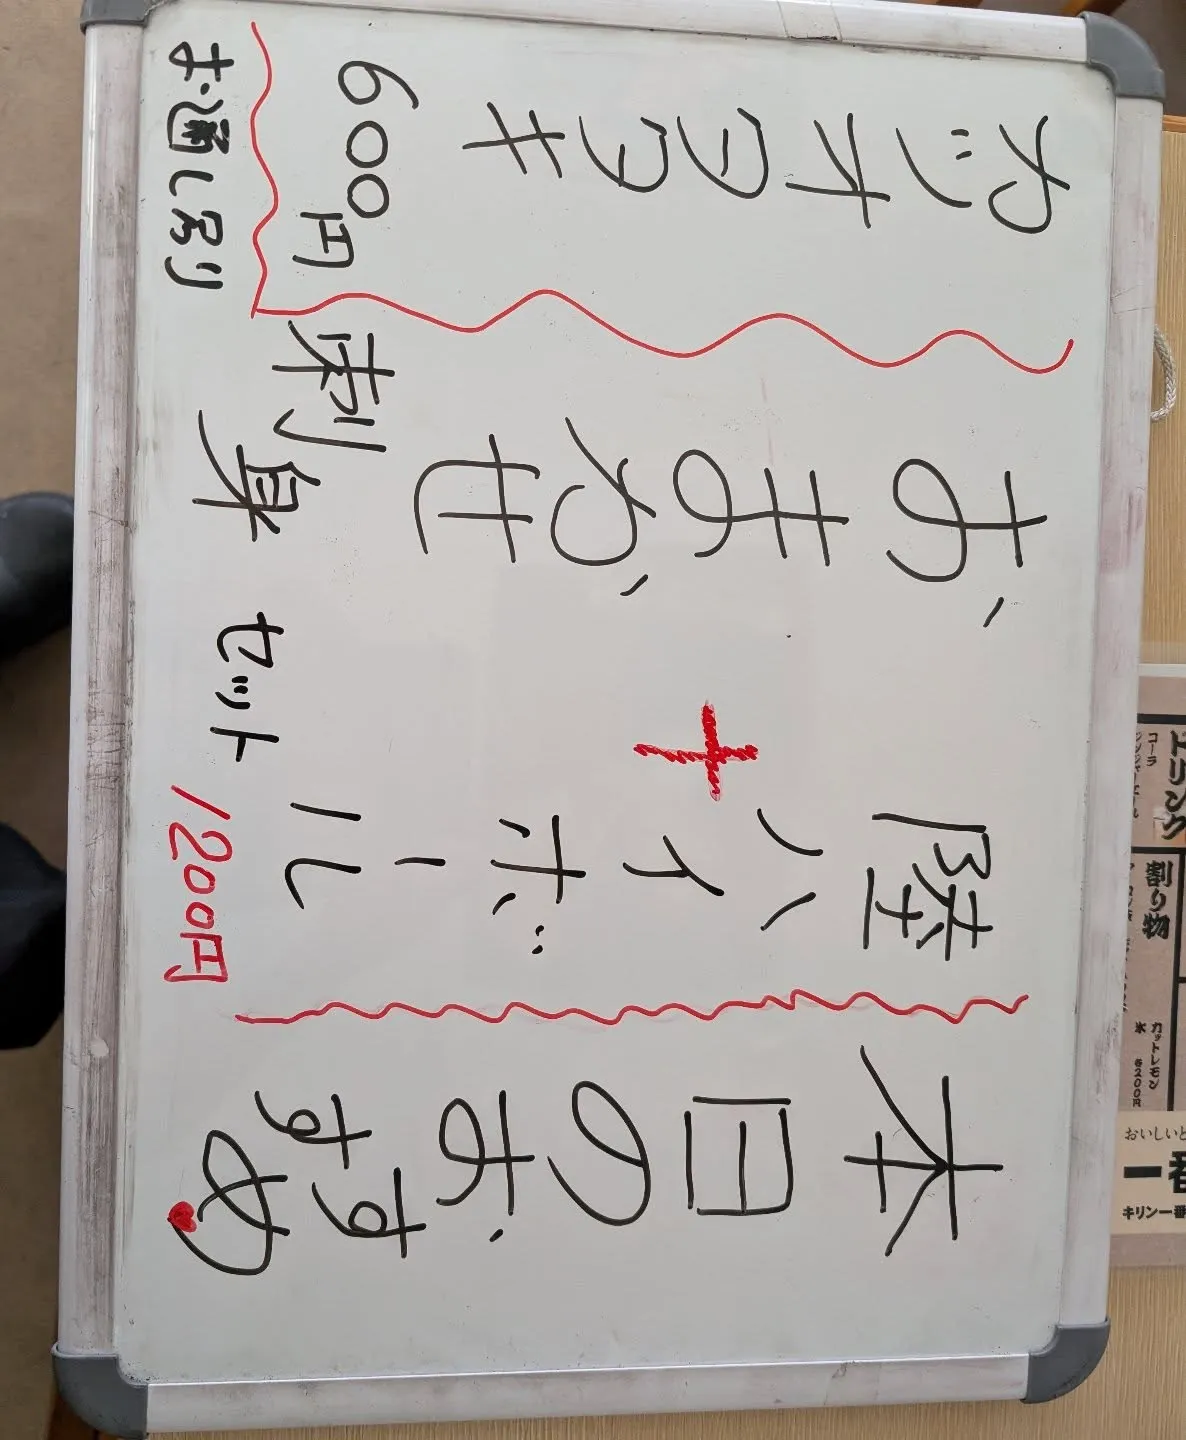 本日のおすすめ
陸ハイボール
+
おまかせ
刺身
セット
1200円
カツオタタキ
600円
お通し別
ドリンク
コーラ
割り物
カットレモン
氷 各200円
おいしいと
一番
キリン一番